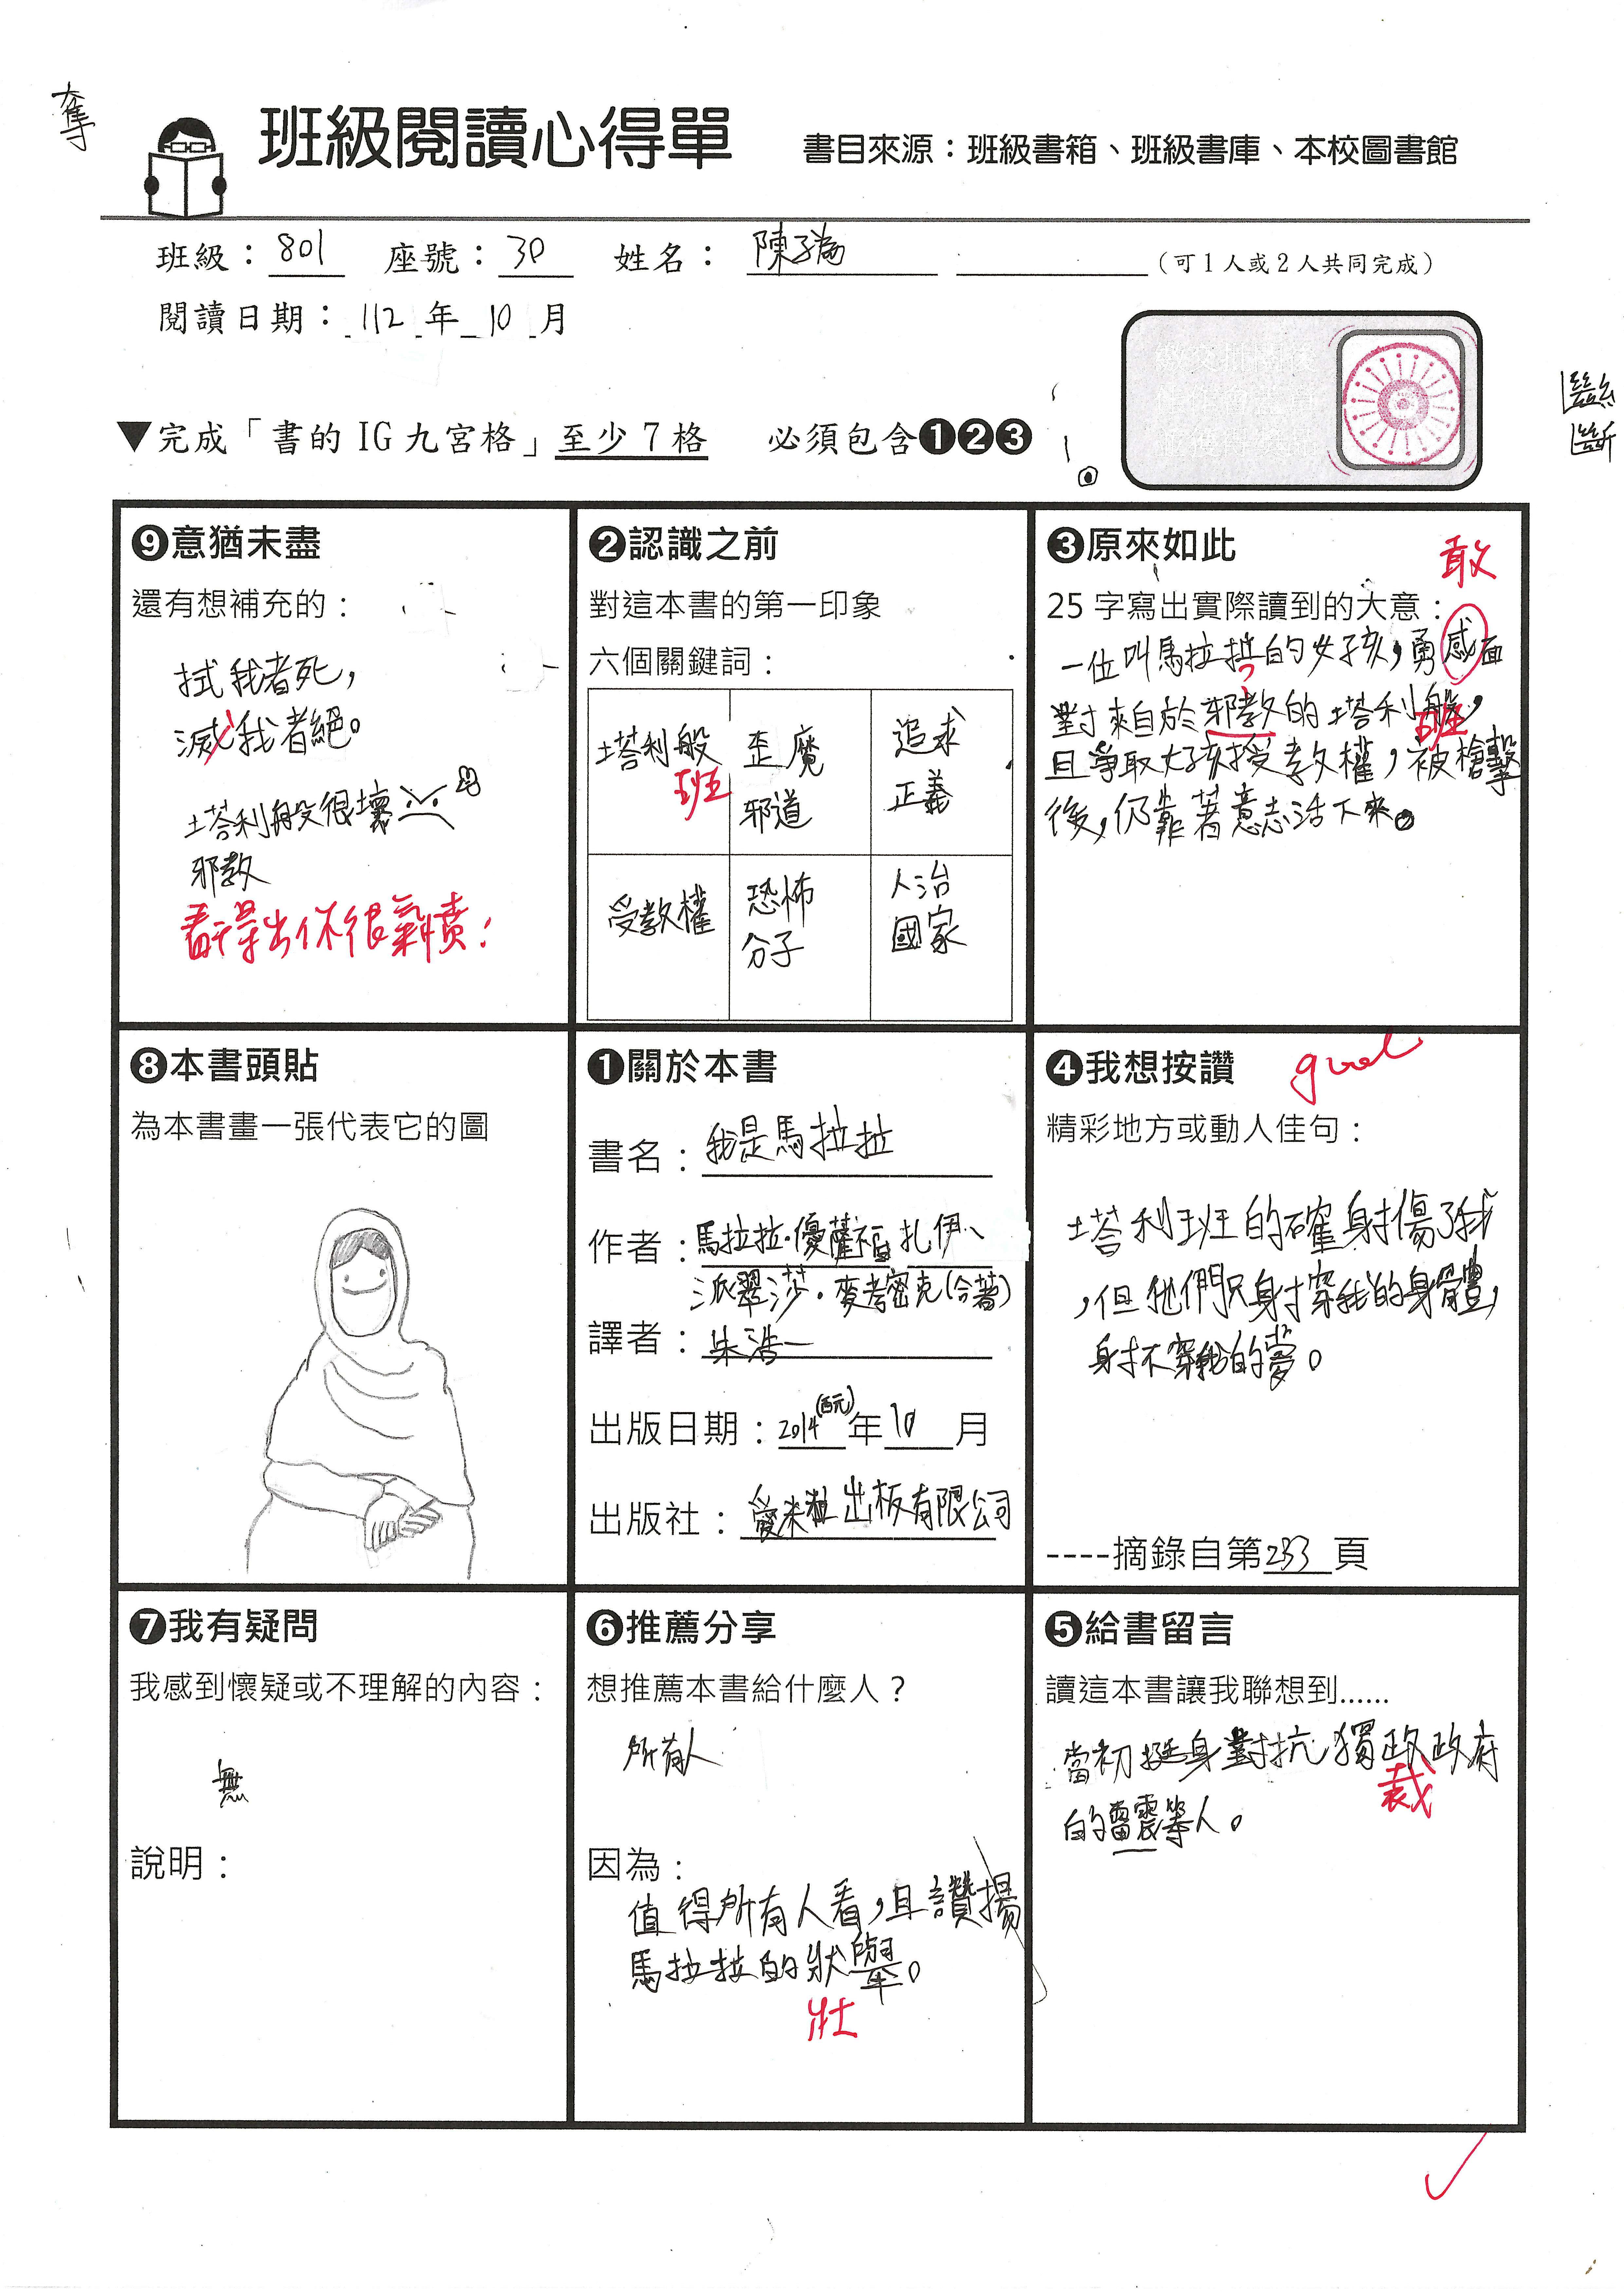 奪
班級閱讀心得單
書目來源：班級書箱、班級書庫、本校圖書館
班級：801 座號：30 姓名：陳子為 （可1人或2人共同完成）
閱讀日期：112年10月
繼
斷
▼完成「書的 IG 九宮格」至少 7 格 必須包含❶❷❸
❾意猶未盡
還有想補充的：
拭我者死，
滅我者絕。
塔利般很壞
邪教
看得出你很氣憤！
❷認識之前
對這本書的第一印象
六個關鍵詞：
塔利般
班
歪魔
邪道
追求
正義
受教權
恐怖
分子
人治
國家
❸原來如此
敢
25 字寫出實際讀到的大意：
一位叫馬拉拉的女孩，勇感面
對來自於邪教的塔利般，
班
且爭取女孩授教權，被槍擊
後，仍靠著意志活下來。
❽本書頭貼
為本書畫一張代表它的圖
❶關於本書
書名：我是馬拉拉
作者：馬拉拉·優薩福扎伊、
派翠莎·麥考密克(合著)
譯者：朱浩一
出版日期：2014(西元)年10月
出版社：愛米粒出板有限公司
❹我想按讚
good
精彩地方或動人佳句：
塔利班的確射傷了我
，但他們只射穿我的身體，
射不穿我的夢。
----摘錄自第233頁
❼我有疑問
我感到懷疑或不理解的內容：
無
說明：
❻推薦分享
想推薦本書給什麼人？
所有人
因為：
值得所有人看，且讚揚
馬拉拉的狀舉。
壯
❺給書留言
讀這本書讓我聯想到......
當初挺身對抗獨政政府
裁
的雷震等人。